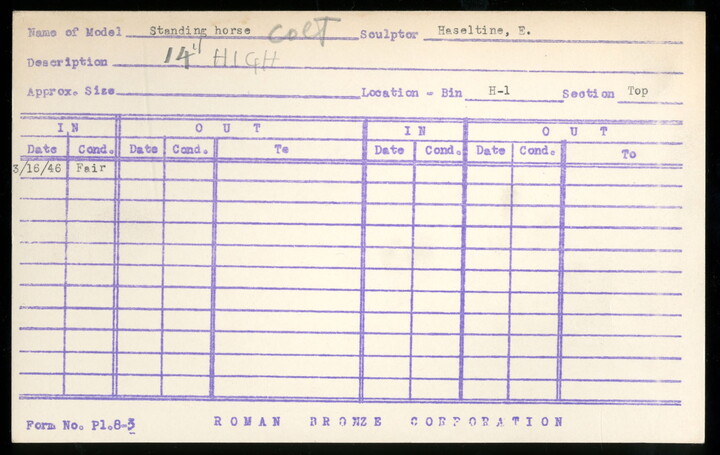 Name of Model Standing horse COLT Sculptor Haseltine, E.
Description 14" HIGH
Approx. Size Location - Bin H-1 Section Top
IN OUT IN OUT
Date Cond. Date Cond. To Date Cond. Date Cond. To
3/16/46 Fair
Form No. Pl.8-3 ROMAN BRONZE CORPORATION